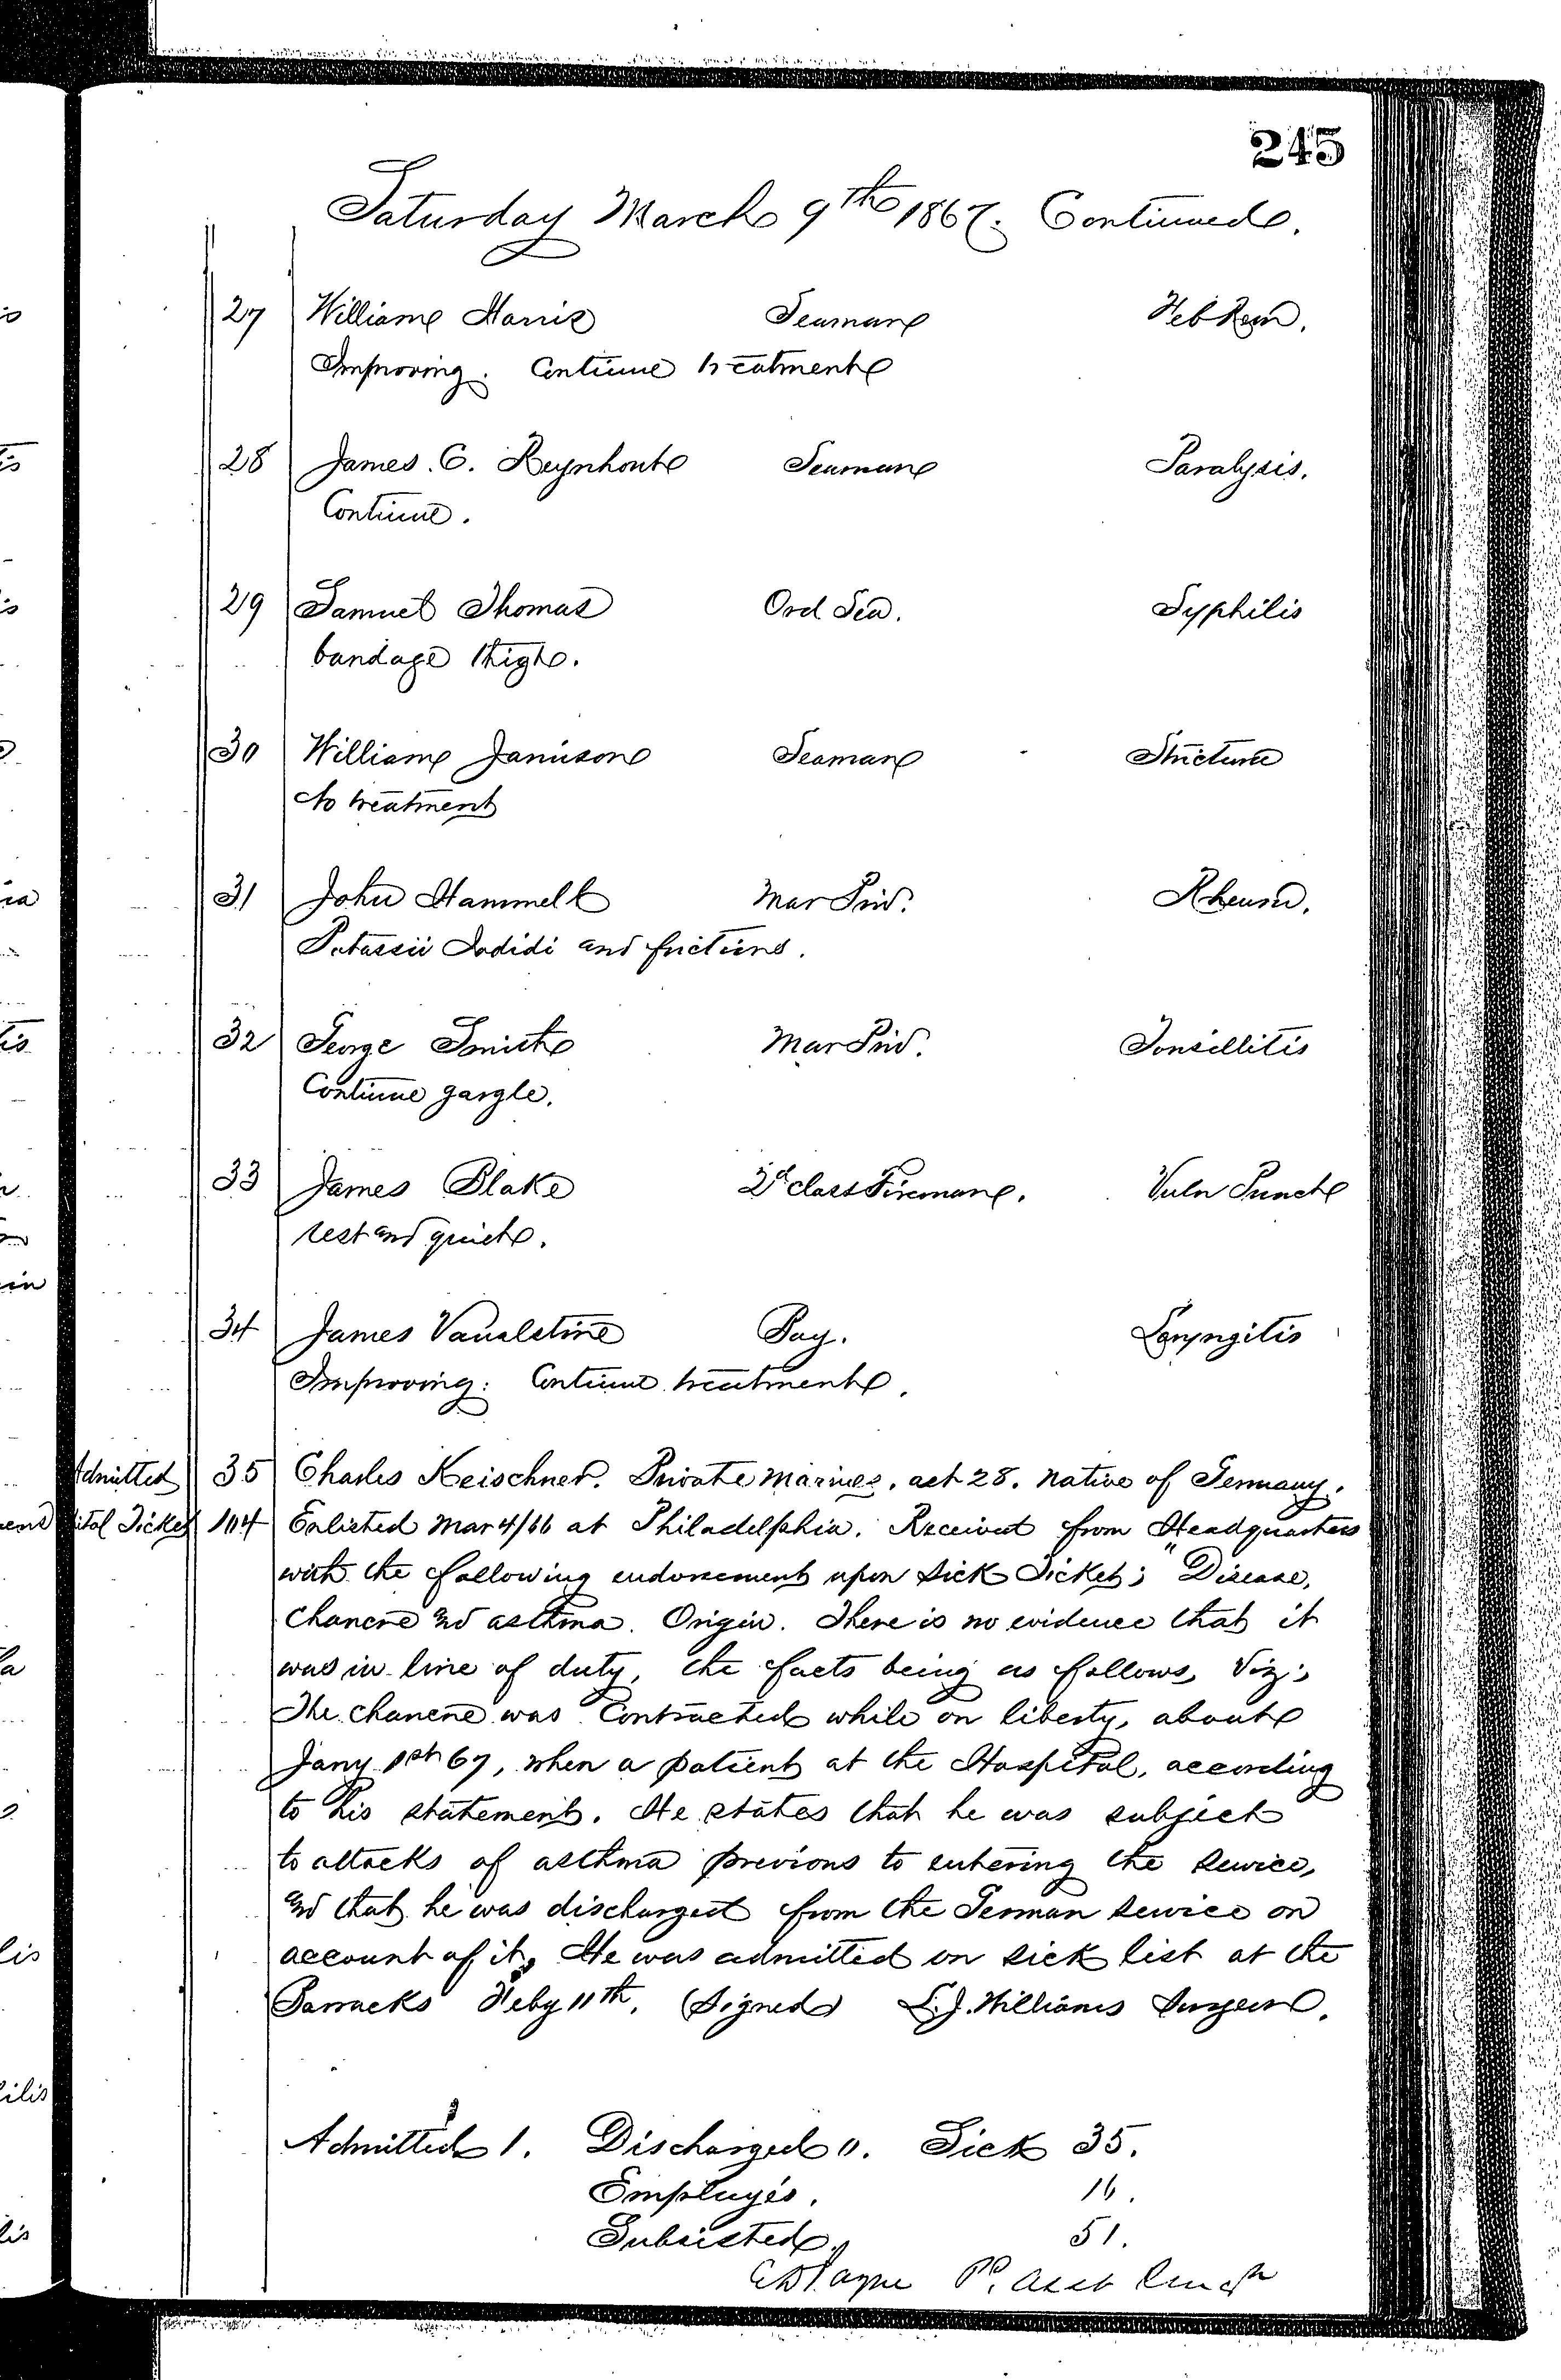 245
Saturday March 9th 1867. Continued.
27 William Harris Seaman Feb Rem.
Improving. Continue treatment
28 James. C. Reynhout Seaman Paralysis.
Continue.
29 Samuel Thomas Ord Sea. Syphilis
bandage thigh.
30 William Jamison Seaman Stricture
No treatment
31 John Hammell Mar Priv. Rheum.
Potassii Iodidi and frictions.
32 George Smith Mar Priv. Tonsillitis
Continue gargle.
33 James Blake 2d class Fireman. Vuln Punct
rest and quiet.
34 James Vanalstine Pay. Laryngitis
Improving: Continue treatment.
Admitted 35 Charles Keischner. Private Marines. aet 28. native of Germany.
ital Ticket 104 Enlisted Mar 4/66 at Philadelphia. Received from Headquarters
with the following endorsement upon Sick Ticket; "Disease,
Chancre and asthma. Origin. There is no evidence that it
was in line of duty, the facts being as follows, Viz;
The chancre was contracted while on liberty, about
Jany 1st 67, when a patient at the Hospital, according
to his statement. He states that he was subject
to attacks of asthma previous to entering the service,
and that he was discharged from the German service on
account of it, He was admitted on sick list at the
Barracks Feby 11th. (Signed) L. J. Williams Surgeon.
Admitted 1. Discharged 0. Sick 35.
Employés. 16.
Subsisted. 51.
Payne Pd. Asst Surgn